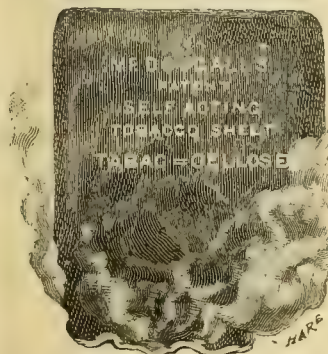 PATENT
SELF ACTING
TOBACCO SHEET
TABAC=CELLOSE
HARE